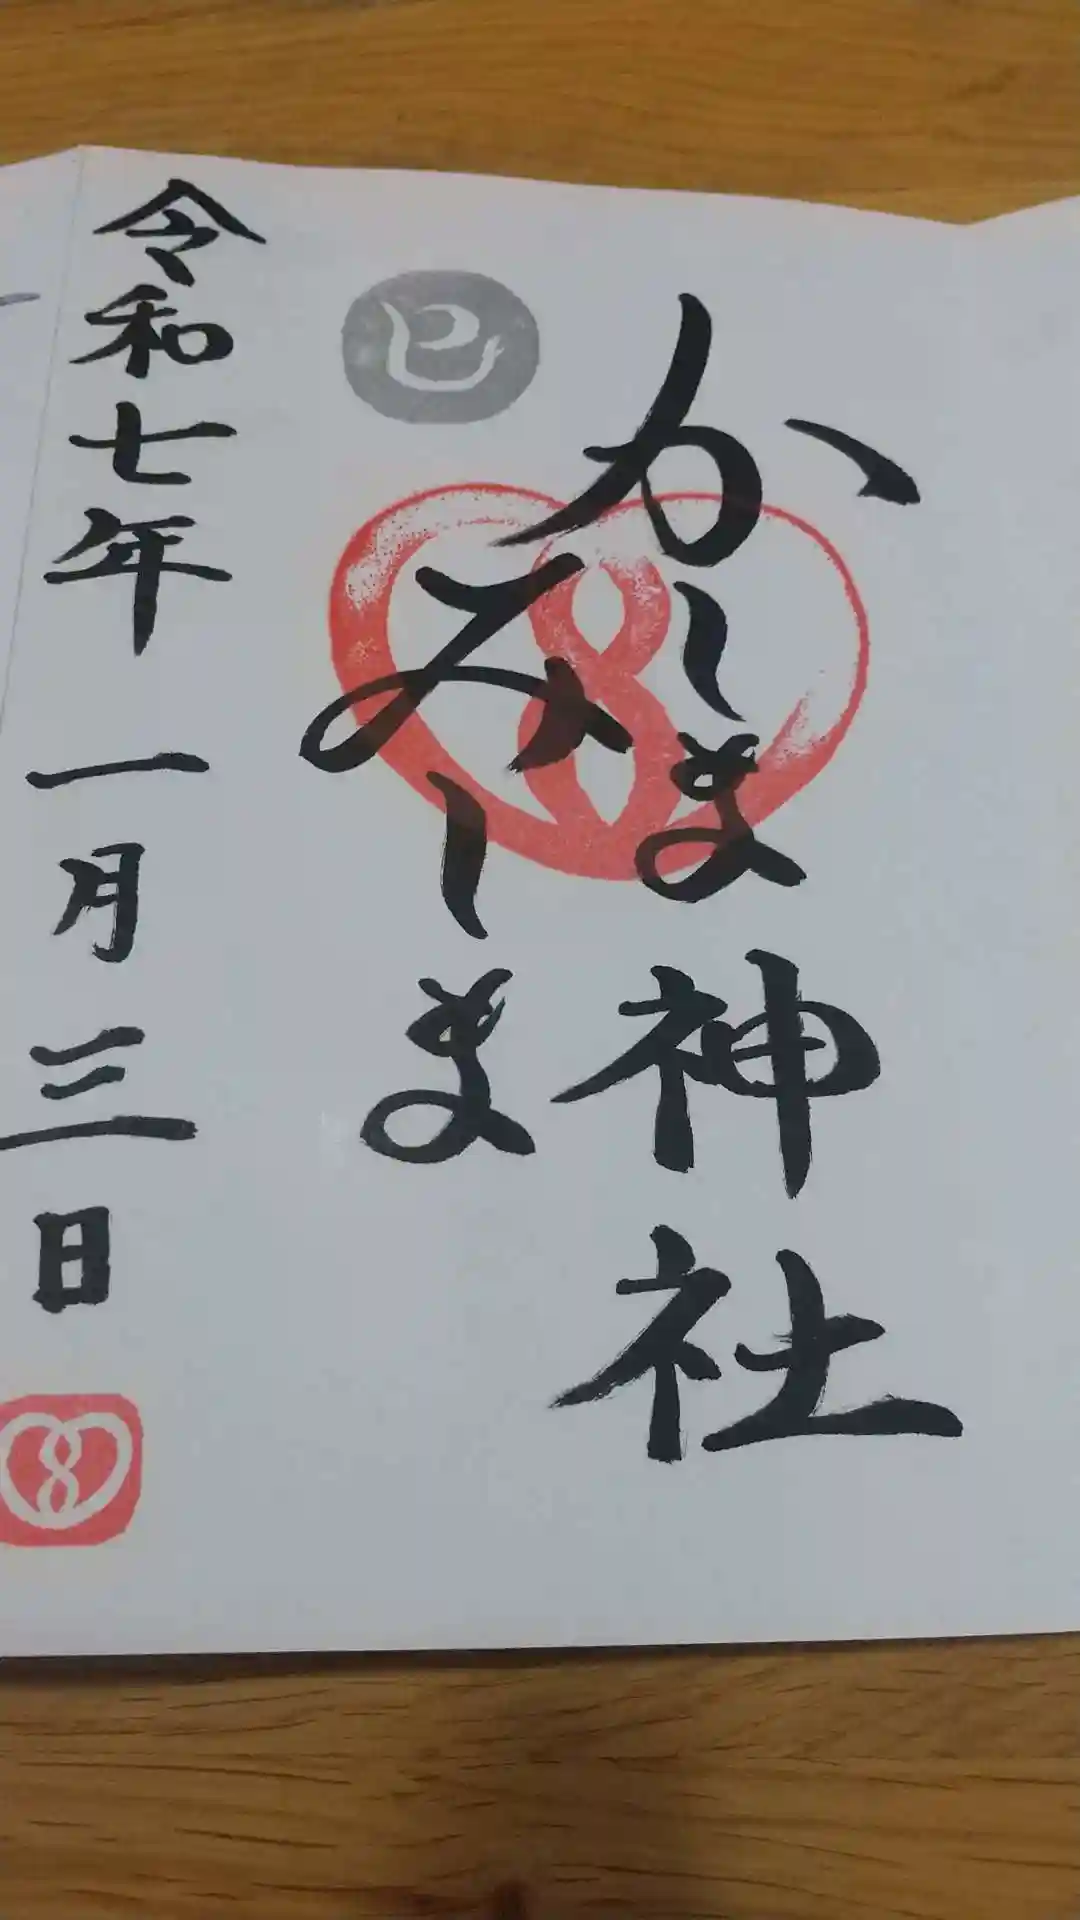 かーま神社
みーま
巳
令和七年一月三日